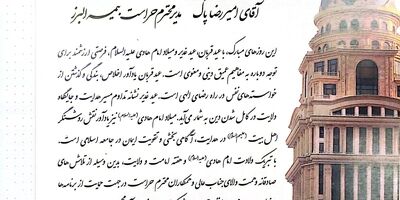 آقای امیررضا پاک   مدیر محترم حراست بیمه البرز
این روزهای مبارک، با عید قربان، عید غدیر و میلاد امام هادی علیه السلام، فرصتی ارزشمند برای
توجه دوباره به مفاهیم عمیق دینی و معنوی است. عید قربان یادآور اخلاص، بندگی و گذشتن از
خواسته‌های نفس در راه رضای الهی است. عید غدیر نشانه تداوم مسیر هدایت و جایگاه
ولایت در کامل شدن دین به شمار می‌آید. میلاد امام هادی (علیه السلام) نیز یادآور نقش روشنگر
اهل بیت (علیهم السلام) در هدایت، آگاهی بخشی و تقویت ایمان در جامعه اسلامی است.
با تبریک ولادت امام هادی (علیه السلام) و هفته امامت و ولایت، بدین وسیله از تلاش های
صادقانه و همت والای جناب عالی و همکاران محترم حراست در جهت حمایت از برنامه‌ها